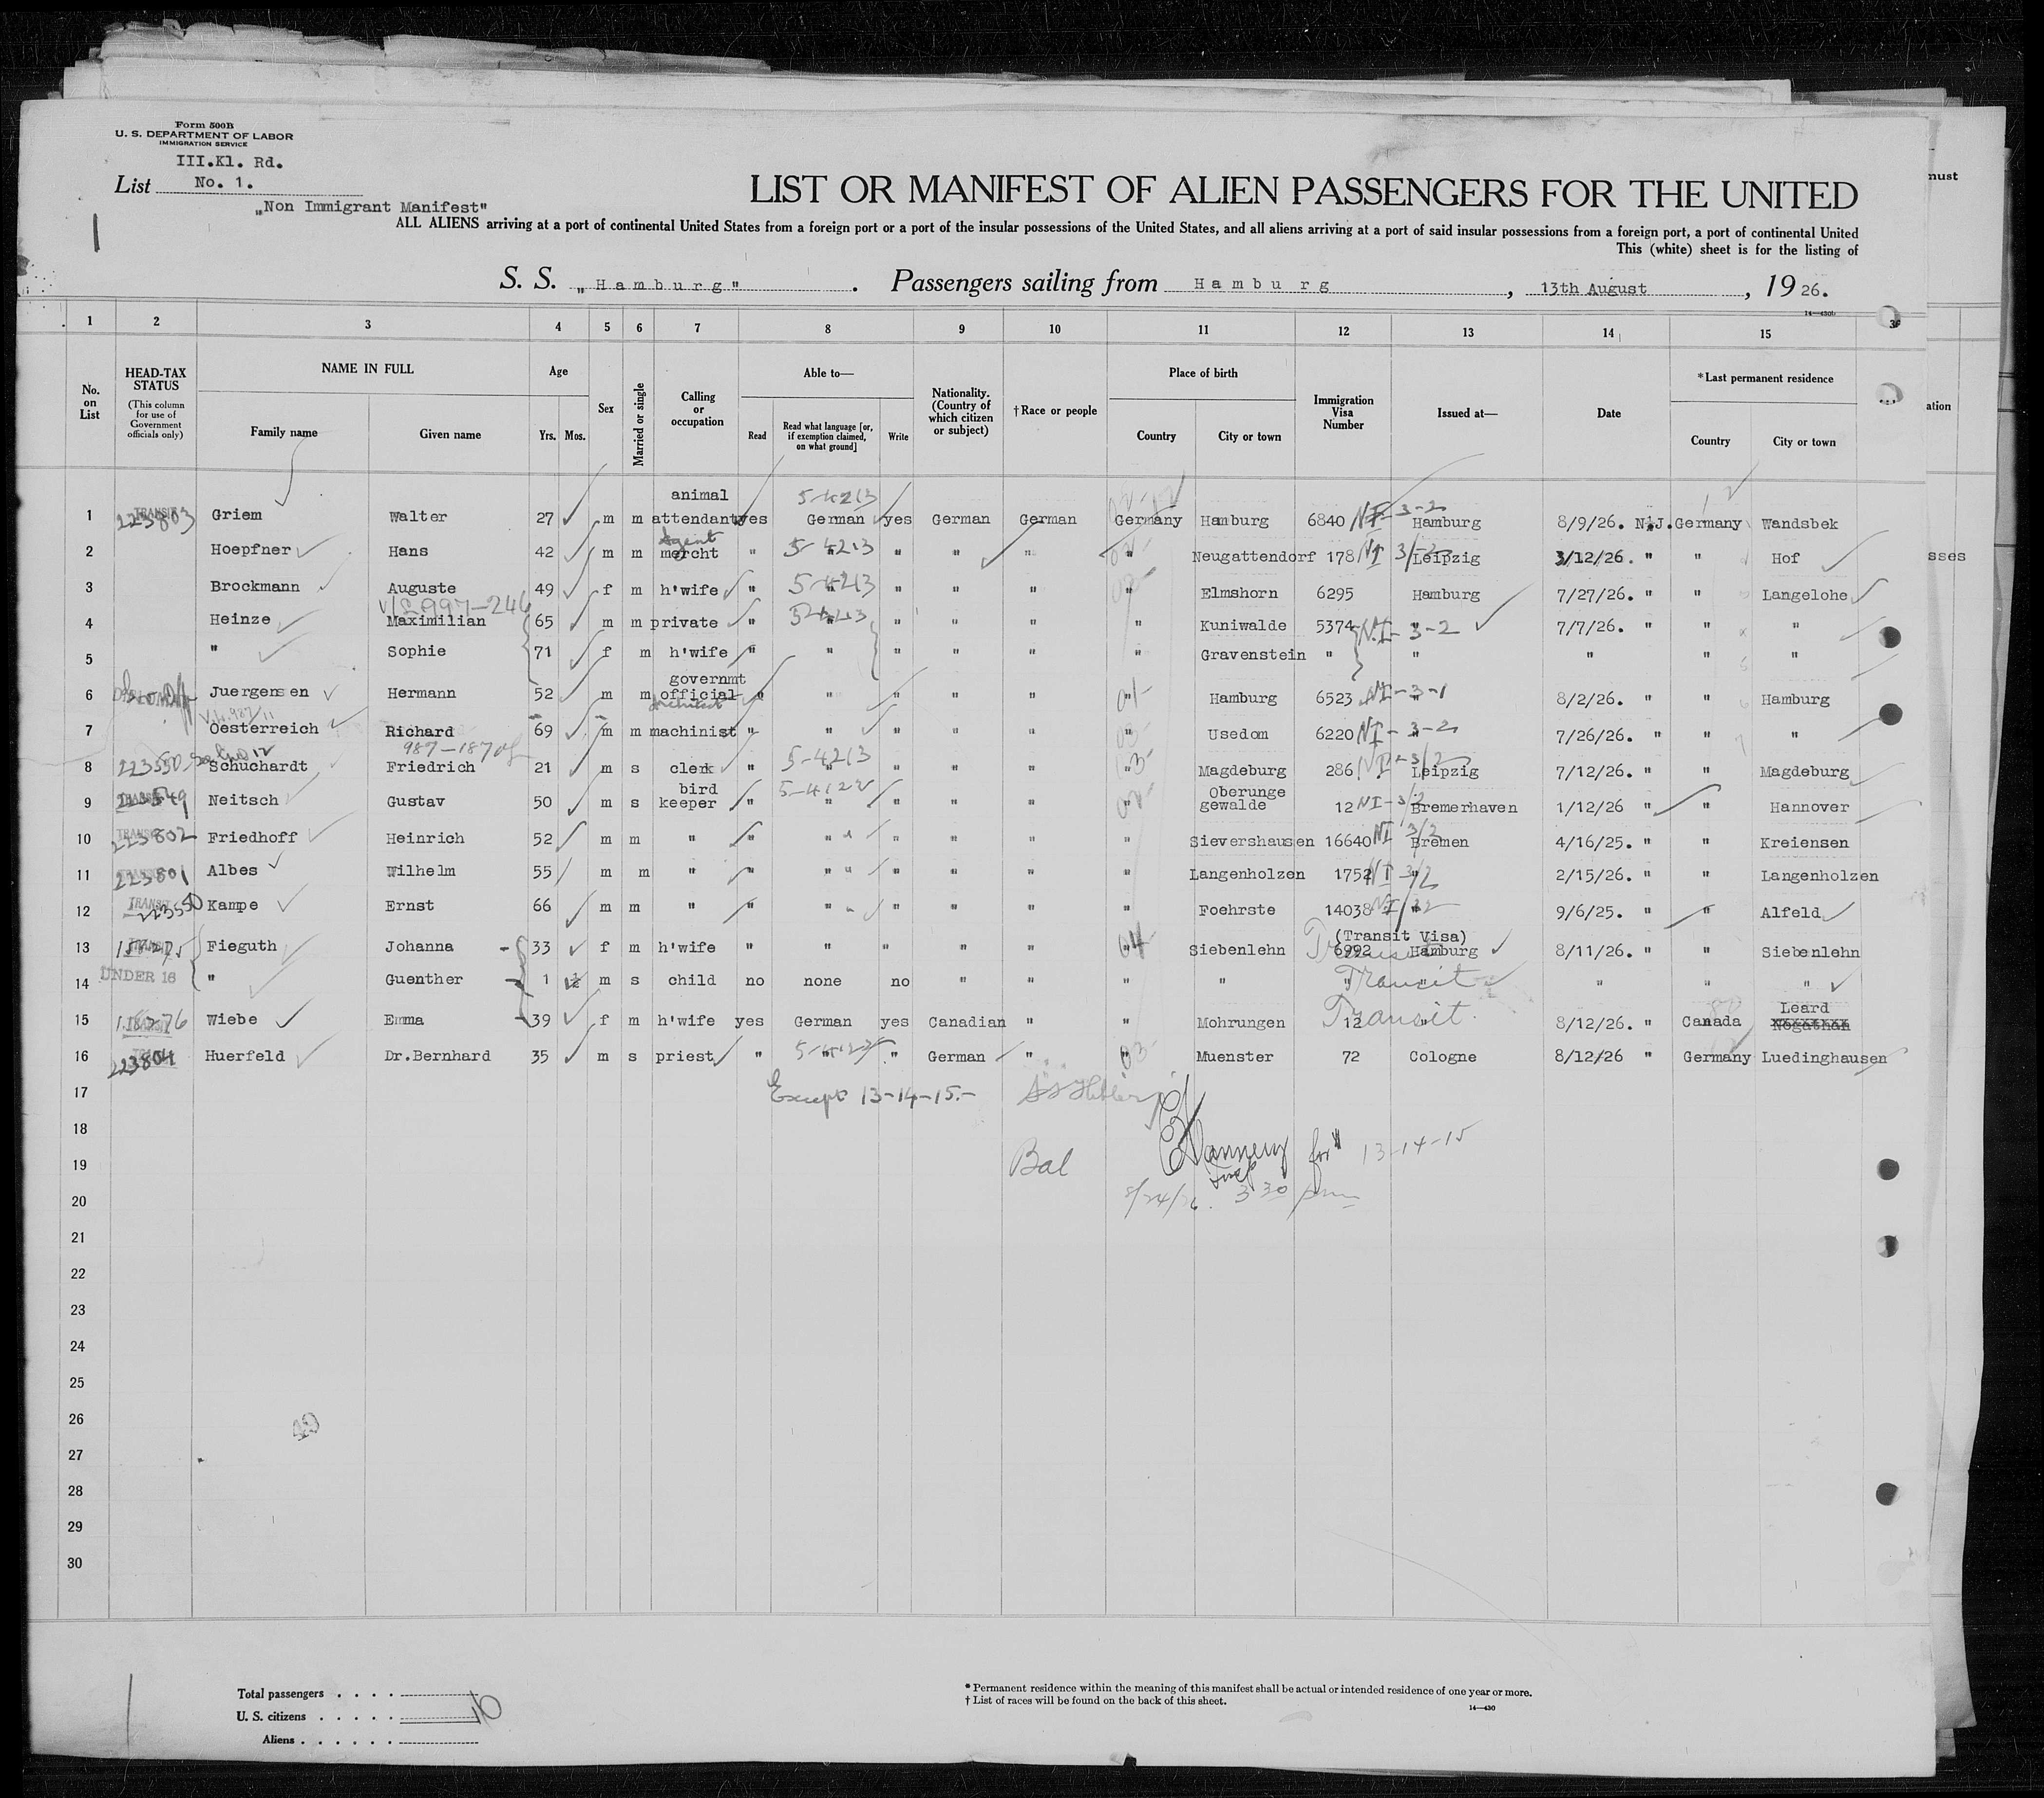 Form 500B
U. S. DEPARTMENT OF LABOR
IMMIGRATION SERVICE
III.Kl. Rd.
List No. 1.
„Non Immigrant Manifest"
LIST OR MANIFEST OF ALIEN PASSENGERS FOR THE UNITED
ALL ALIENS arriving at a port of continental United States from a foreign port or a port of the insular possessions of the United States, and all aliens arriving at a port of said insular possessions from a foreign port, a port of continental United
This (white) sheet is for the listing of
S. S. „Hamburg". Passengers sailing from Hamburg, 13th August, 1926.
14—430b
1 2 3 4 5 6 7 8 9 10 11 12 13 14 15
No. on List
HEAD-TAX STATUS (This column for use of Government officials only)
NAME IN FULL
Family name Given name
Age
Yrs. Mos.
Sex
Married or single
Calling or occupation
Able to—
Read Read what language [or, if exemption claimed, on what ground] Write
Nationality. (Country of which citizen or subject)
†Race or people
Place of birth
Country City or town
Immigration Visa Number
Issued at—
Date
*Last permanent residence
Country City or town
1 TRANSIT 223803 Griem Walter 27 m m animal attendant yes 5-4213 German yes German German Germany Hamburg 6840 NI-3-2 Hamburg 8/9/26. N.J. Germany Wandsbek
2 Hoepfner Hans 42 m m Agent mercht " 5-4213 " " " " " Neugattendorf 178 NI 3/2 Leipzig 3/12/26. " " Hof
3 Brockmann Auguste 49 f m h'wife " 5-4213 " " " " " Elmshorn 6295 Hamburg 7/27/26. " " Langelohe
997-246
4 Heinze Maximilian 65 m m private " 5-4213 " " " " " Kuniwalde 5374 NI-3-2 " 7/7/26. " " "
5 " Sophie 71 f m h'wife " " " " " " Gravenstein " " " " "
6 Juergensen Hermann 52 m m governmt official " " " " " " Hamburg 6523 NI-3-1 " 8/2/26. " " Hamburg
7 Oesterreich Richard 69 m m architect machinist " " " " " " Usedom 6220 NI-3-2 " 7/26/26. " " "
987-187
8 223550 Schuchardt Friedrich 21 m s clerk " 5-4213 " " " " " Magdeburg 286 NI-3/2 Leipzig 7/12/26. " " Magdeburg
9 Neitsch Gustav 50 m s bird keeper " 5-4122 " " " " " Oberunge gewalde 12 NI-3/2 Bremerhaven 1/12/26 " " Hannover
10 TRANSIT 223802 Friedhoff Heinrich 52 m m " " " " " " " Sievershausen 16640 NI 3/2 Bremen 4/16/25. " " Kreiensen
11 223801 Albes Wilhelm 55 m m " " " " " " " Langenholzen 1752 NI-3/2 " 2/15/26. " " Langenholzen
12 TRANSIT 223550 Kampe Ernst 66 m m " " " " " " " Foehrste 14038 " 9/6/25. " " Alfeld
13 Fieguth Johanna 33 f m h'wife " " " " " 04 " Siebenlehn (Transit Visa) 6992 Transit Hamburg 8/11/26. " " Siebenlehn
14 UNDER 16 " Guenther 1 m s child no none no " " " " " Transit " " " " "
15 Wiebe Emma 39 f m h'wife yes German yes Canadian " " Mohrungen 12 Transit " 8/12/26. " Canada Leard
16 223804 Huerfeld Dr.Bernhard 35 m s priest " 5-4122 " " German " " Muenster 72 Cologne 8/12/26 " Germany Luedinghausen
17 Except 13-14-15.-
18 for 13-14-15
19 Bal Insp
20 8/24/26. 3 30 pm
21
22
23
24
25
26
27
28
29
30
Total passengers . . . .
U. S. citizens . . . . .
Aliens . . . . . .
* Permanent residence within the meaning of this manifest shall be actual or intended residence of one year or more.
† List of races will be found on the back of this sheet.
14—430
must
ation
sses